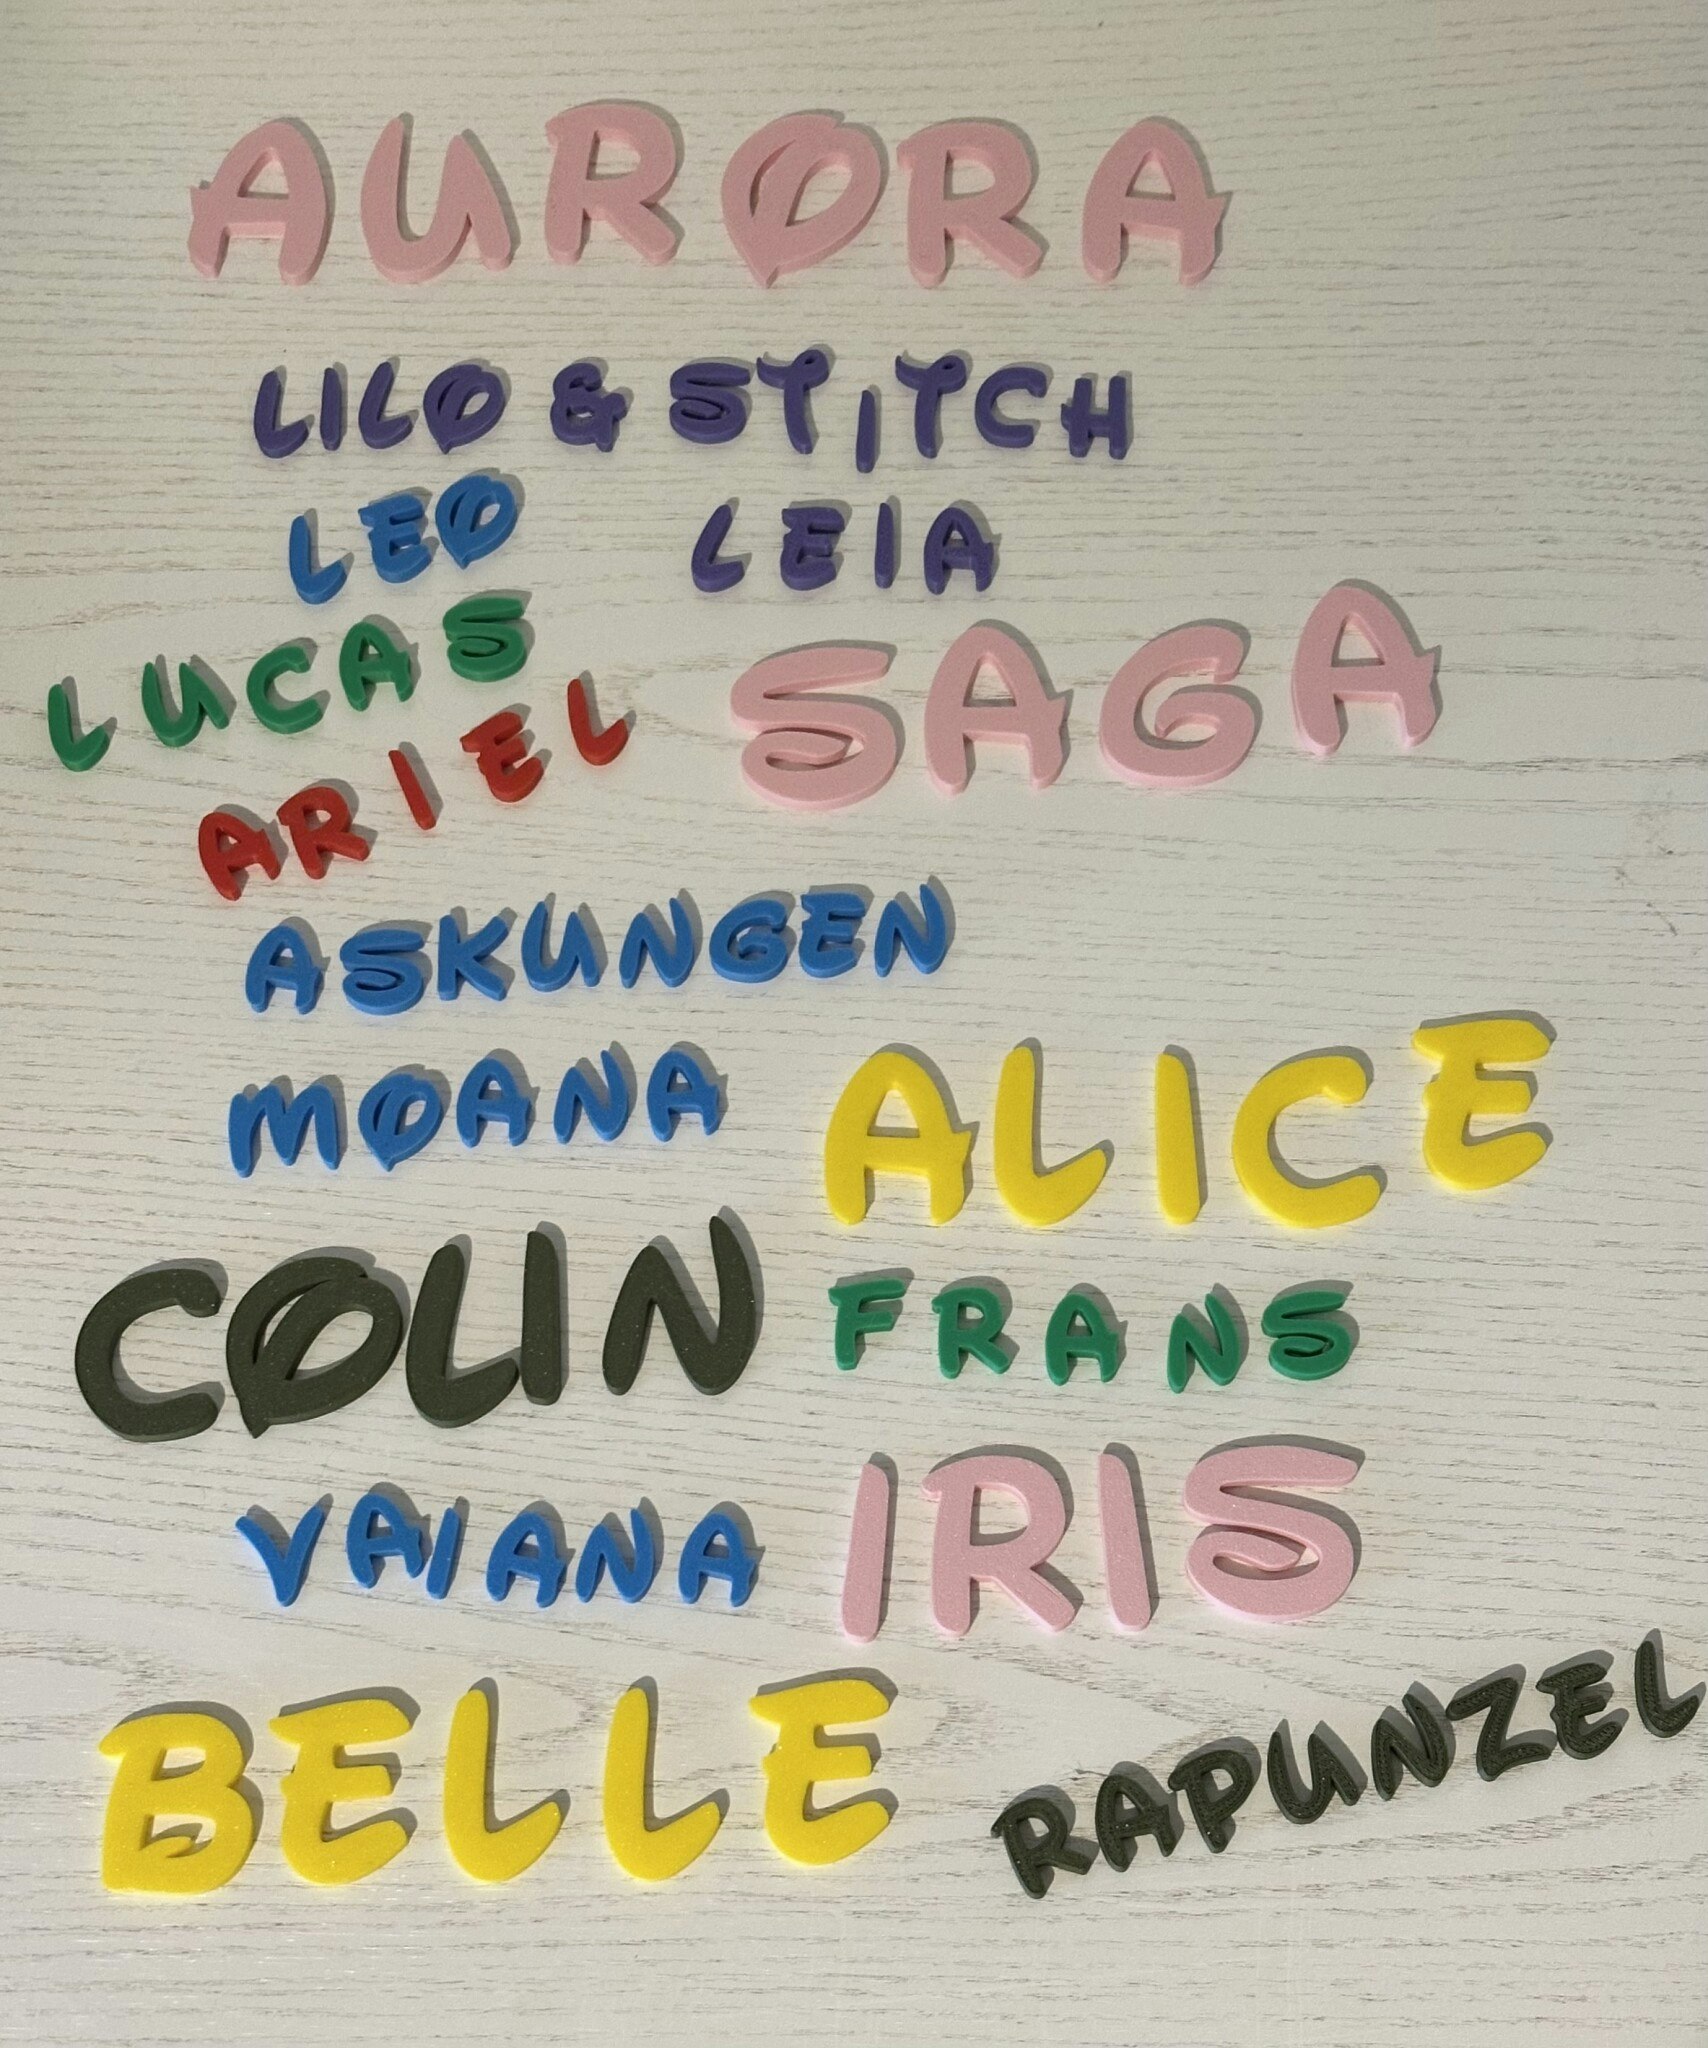 AURORA
LILO & STITCH
LEO LEIA
LUCAS
SAGA
ARIEL
ASKUNGEN
MOANA
ALICE
COLIN
FRANS
VAIANA
IRIS
BELLE
RAPUNZEL